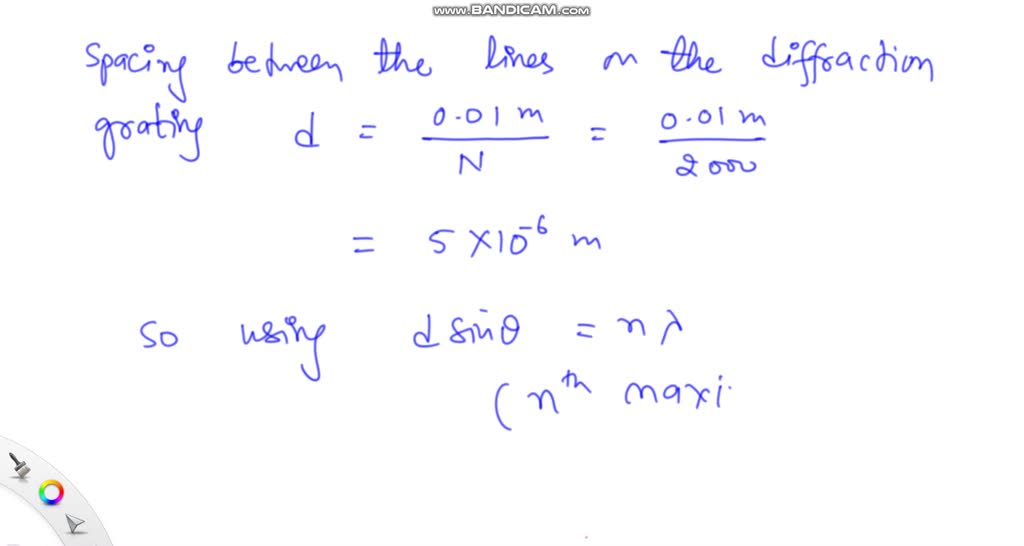 www.BANDICAM.com
Spacing between the lines on the diffraction
grating d = 0.01 m / N = 0.01 m / 2000
= 5 × 10⁻⁶ m
So using d sinθ = nλ
(nᵗʰ maxi